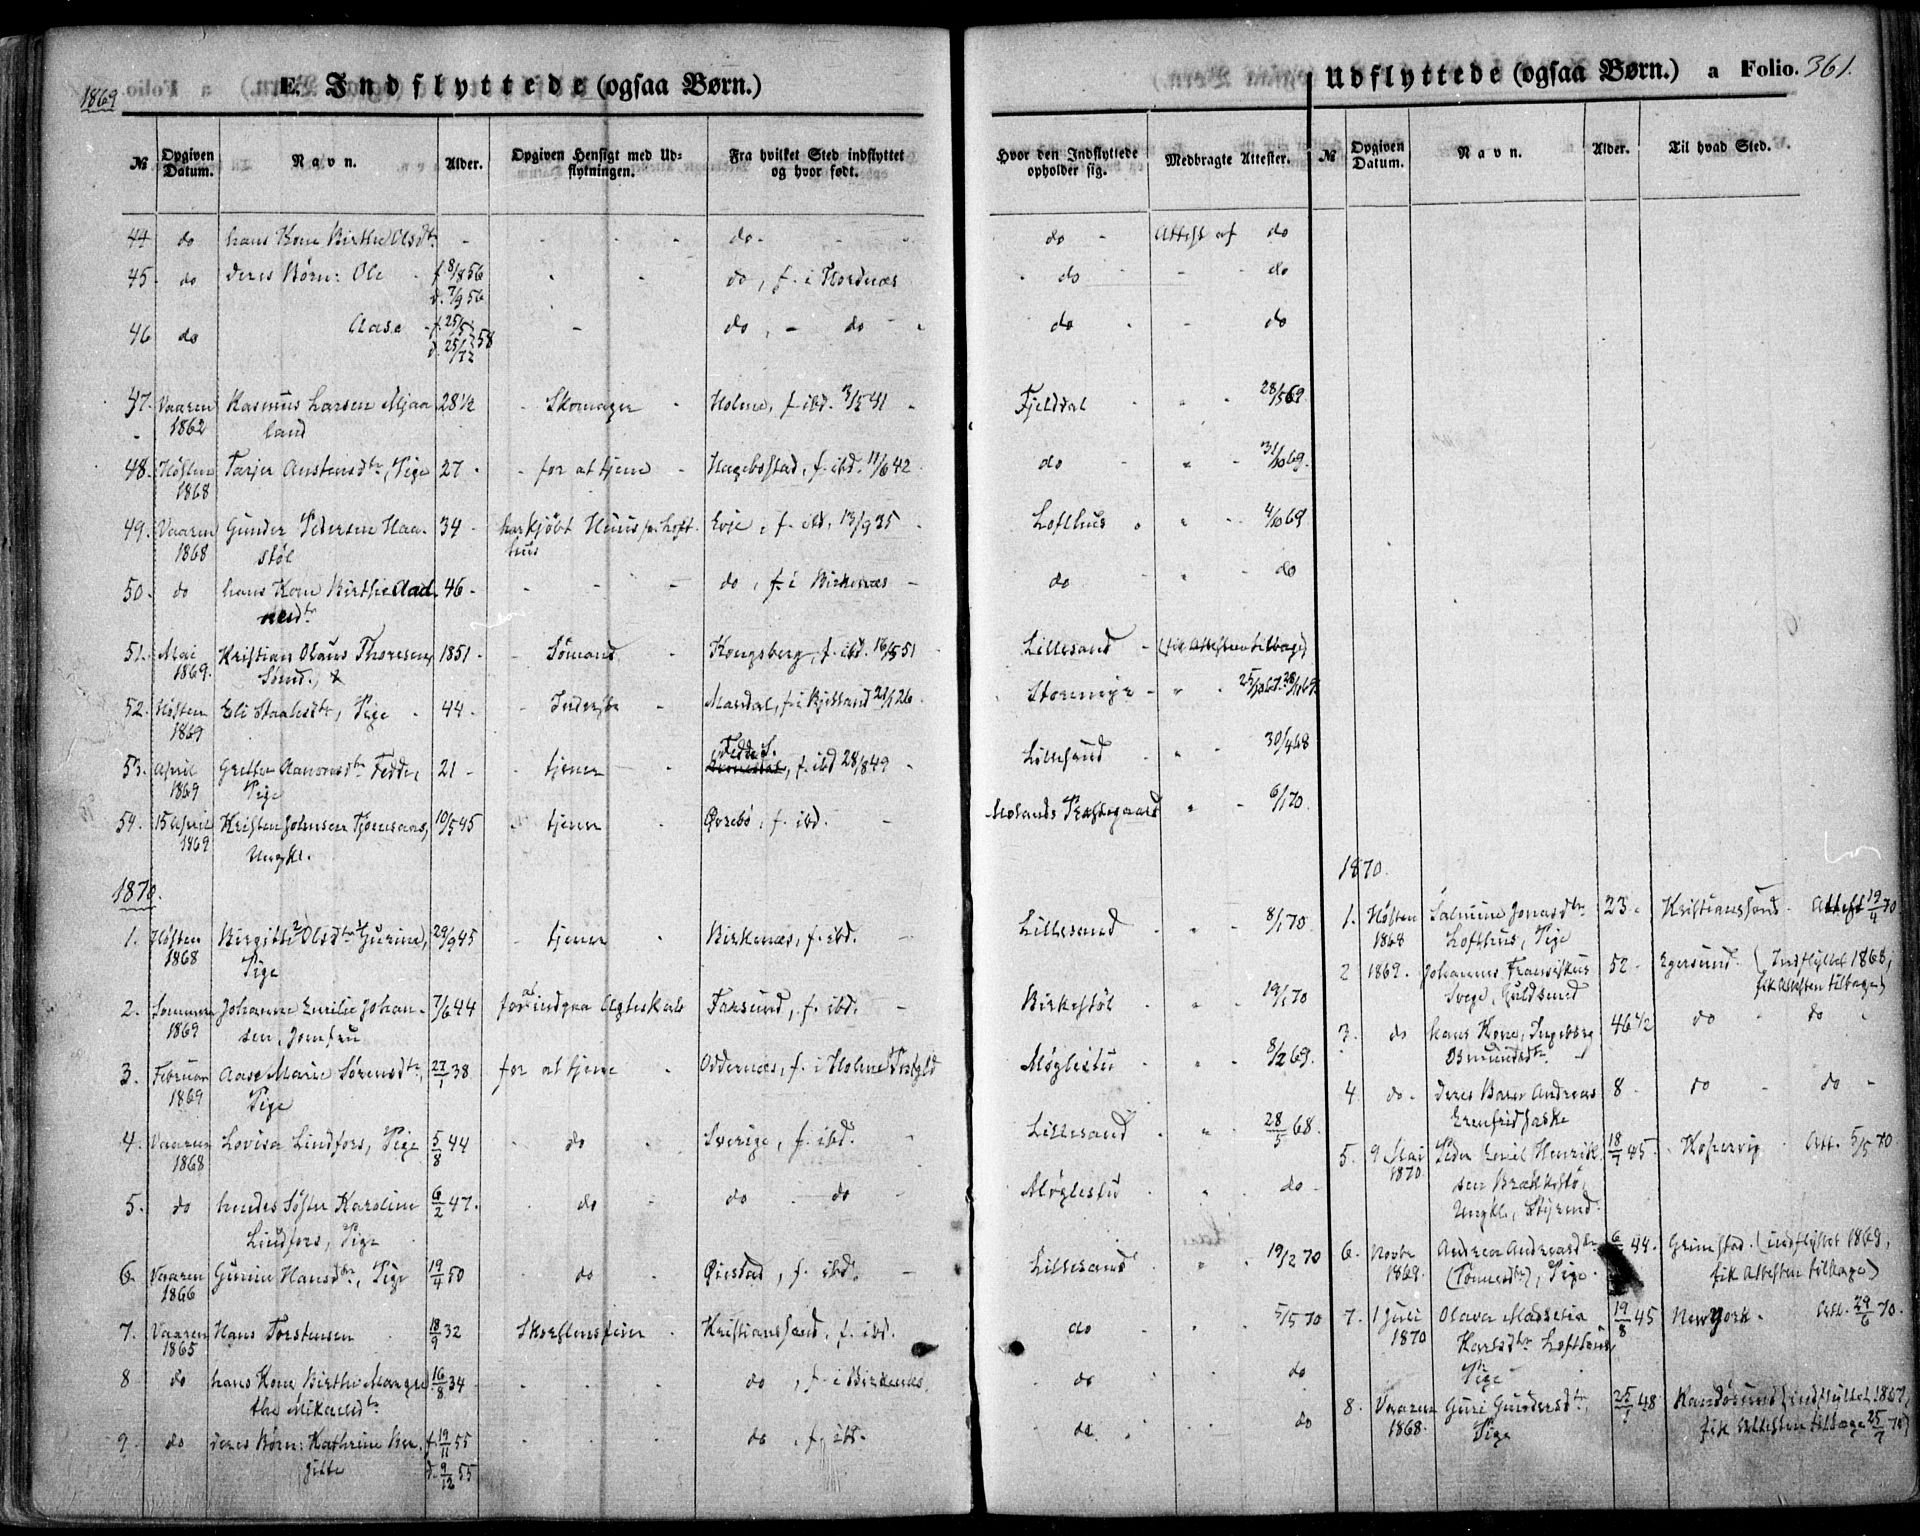 1869
E. Indflyttede (ogsaa Børn.)
№ Opgiven Datum. Navn. Alder. Opgiven Hensigt med Udflytningen. Fra hvilket Sted indflyttet og hvor født.
44 do hans Kone Birthe Olsdtr - - do -
45. do deres Børn: Ole f. 8/8 56 do, f. i
d. 7/9 56
46 do Aase f. 25/5 58 - do, - do
d. 25/12
47. Vaaren Rasmus Larsen Mjaa- 28 1/2 Skomager Holme, f. ibd. 3/5 41
1862 land
48. Høsten Tarjer Austensdtr, Pige 27 - for at tjene Hægebostad, f. ibd. 11/6 42
1868
49. Vaaren Gunder Pedersen Haa- 34 har kjøbt Huus p. Loft- Evje, f. ibd. 13/9 35
1868 støl hus
50. do hans Kone Birthe Aad- 46 - do, f. i Birkenæs -
nesdtr
51. Mai Kristian Olaus Thoresen, 1851 - Sømand Kongsberg, f. ibd. 16/5 51
1869. Sømd.
52. Høsten Eli Staalesdtr, Pige 44 - Inderste Mandal, f. i Bjelland 21/1 26
1869
Fedde S.
53. April Grethe Aanonsdtr Fedde, 21 - tjener f. ibd 28/8 49
1869 Pige
54. 15 April Kristen Johnsen Tjomsaas, 10/5 45 tjener Øvrebø, f. ibd. -
1869 Ungkl.
1870.
1. Høsten Birgitte Olsdtr Gurine, 29/9 45 - tjener Birkenæs, f. ibd.
1868 Pige
2. Sommeren Johanne Emilie Johan- 7/6 44 for at indgaa Ægteskab Farsund, f. ibd. -
1869 sen, Jomfru
3. Februar Aase Marie Sørensdtr, 27/1 38 for at tjene Oddernæs, f. i Holme Præstgld
1869 Pige
4. Vaaren Lovisa Lindfors, Pige 5/8 44 do Sverige, f. ibd.
1868
5. do hendes Søster Karoline 6/2 47. do do do
Lindfors, Pige
6. Vaaren Gurine Hansdtr, Pige 19/4 50 do Øiestad, f. ibd. -
1866
7. Vaaren Hans Torstensen 18/9 32 Skorstensfeier Kristianssand, f. ibd.
1865
8 do hans Kone Birthe Margre- 16/8 34 do, f. i Birkenæs.
the Mikaelsdtr
9. do deres Børn: Kathrine Ber- f. 19/11 55 do, f. ibd.
gitte d. 9/12 55
Hvor den Indflyttede opholder sig. Medbragte Attester.
do - Attest af do
do - - do
do - do
Fjelddal 28/5 69
do - 31/10 69.
Lofthus 4/10 69
do - do
Lillesand - (fik Attesten tilbage)
Storemyr - 25/10 67.
Lillesand 30/4 68
Molands Præstegaard - 6/1 70
Lillesand 8/1 70
Birkestøl 19/1 70
Møglestu 8/2 69.
Lillesand 28/5 68
Møglestu do
Lillesand 19/2 70
do 5/5 70
do do
do do
Udflyttede (ogsaa Børn.) a Folio. 361.
№ Opgiven Datum. Navn. Alder. Til hvad Sted.
1870.
1. Høsten Salmine Jonasdtr 23. Kristianssand. Attest 19/4 70
1868 Lofthus, Pige
2 1869. Johannes Fransiskus 52 - Egersund. (Indflyttet 1868,
Svege, Guldsmed fik Attesten tilbage)
3. do hans Kone, Ingeborg 46 1/2 do do
Osmundsdtr
4 do deres Andreas 8 do - do -
Erenfrid
5. 9 Mai Peder Emil Henrik- 18/7 45. Kopervig Att. 5/5 70
1870 sen Brækkestø,
Ungkl., Styrmd.
6. Novbr Andrea Andreasdtr 44. Grimstad. (indflyttet 1868,
1869. (Tønnesdtr), Pige fik Attesten tilbage)
7. 1 Juli Olava 19/8 45 New York. Att. 29/6 70.
1870 Karlsdtr Lofthus,
Pige
8. Vaaren Guri Gundersdtr, 25/1 48 Randøsund (indflyttet 1867,
1868. Pige fik Attesten tilbage 25/7 70)